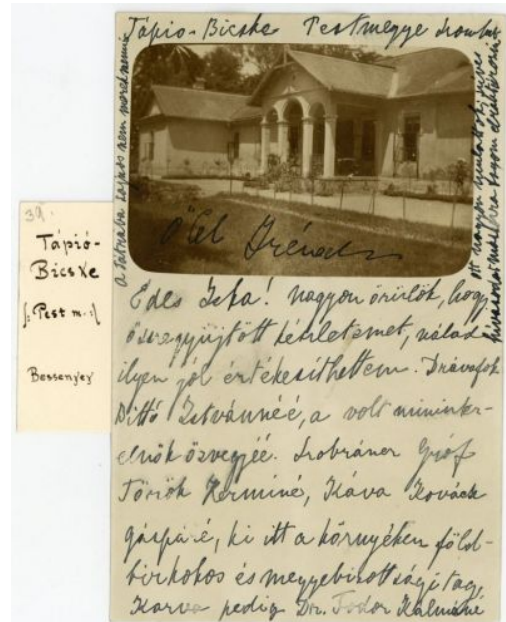 39.
Tápió-
Bicske
/: Pest m. :/
Bessenyey
Tápio-Bicske Pestmegye
a Tátrába sajnos nem
ott nagyon
Ölel Iréned
Édes Iska! Nagyon örülök, hogy
összegyüjtött készletemet, nálad
ilyen jól értékesíthettem. Drávafok
Bittó Istvánnéé, a volt miniszter-
elnök özvegyéé. Szobráncz Gróf
Török Herminé, Káva Kovách
Gáspáré, ki itt a környéken föld-
birtokos és megyebizottsági tag,
Karva pedig Dr. Fodor Kálmáné